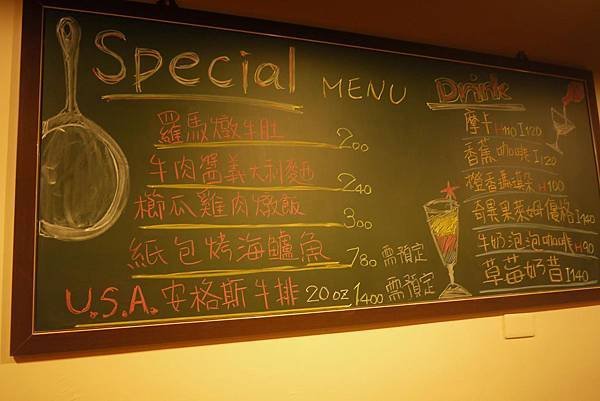 Special MENU
羅馬燉牛肚 200
牛肉醬義大利麵 240
櫛瓜雞肉燉飯 300
紙包烤海鱸魚 780 需預定
U.S.A. 安格斯牛排 20oz 1400 需預定
Drink
摩卡 H110 I120
香蕉咖啡 I120
H100
奇果萊姆優格 I140
牛奶泡泡咖啡 H90
草莓奶昔 I140